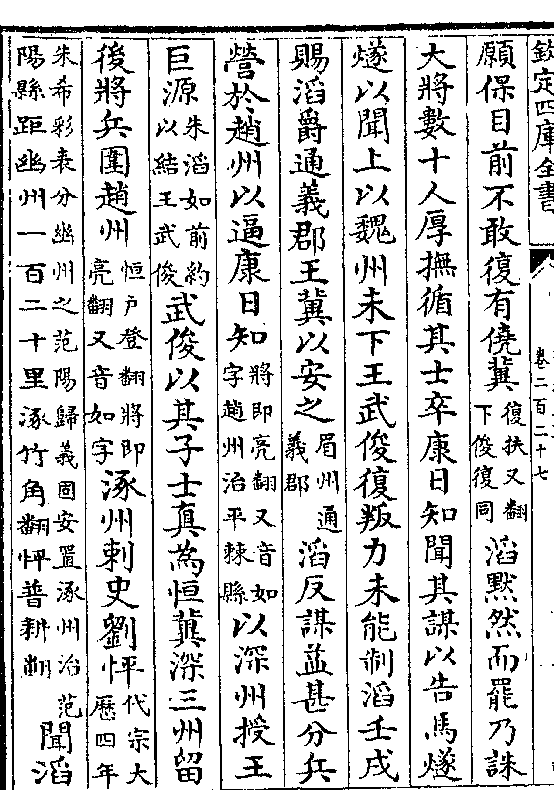 欽定四庫全書
卷二百二十七
願保目前不敢復有僥冀復扶又翻下俊復同滔黙然而罷乃誅
大將數十人厚撫循其士卒康日知聞其謀以告馬燧
燧以聞上以魏州未下王武俊復叛力未能制滔壬戌
賜滔爵通義郡王冀以安之眉州通義郡滔反謀益甚分兵
營於趙州以逼康日知將即亮翻又音如字趙州治平棘縣以深州授王
巨源朱滔如前約以結王武俊武俊以其子士真為恒冀深三州留
後將兵圍趙州恒戶登翻將即亮翻又音如字涿州刺史劉怦代宗大歷四年
朱希彩表分幽州之范陽歸義固安置涿州治范陽縣距幽州一百二十里涿竹角翻怦普耕翻聞滔